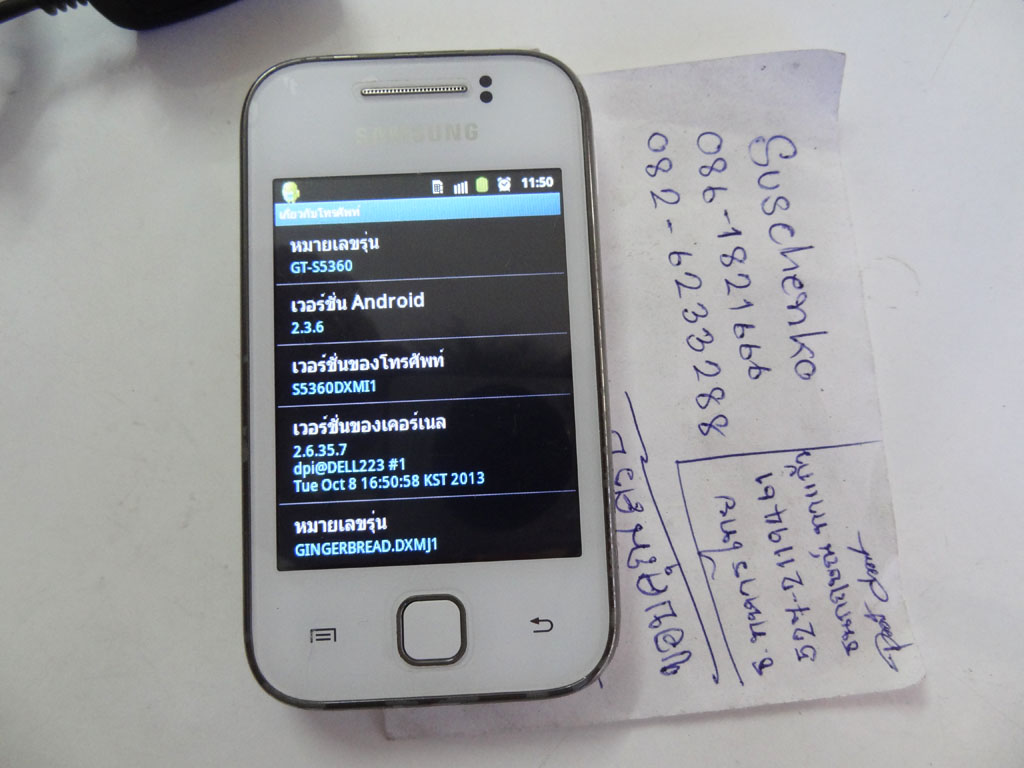 SAMSUNG
11:50
เกี่ยวกับโทรศัพท์
หมายเลขรุ่น
GT-S5360
เวอร์ชั่น Android
2.3.6
เวอร์ชั่นของโทรศัพท์
S5360DXMI1
เวอร์ชั่นของเคอร์เนล
2.6.35.7
dpi@DELL223 #1
Tue Oct 8 16:50:58 KST 2013
หมายเลขรุ่น
GINGERBREAD.DXMJ1
Suschenko
086-1821666
082-6233288
527-2119461